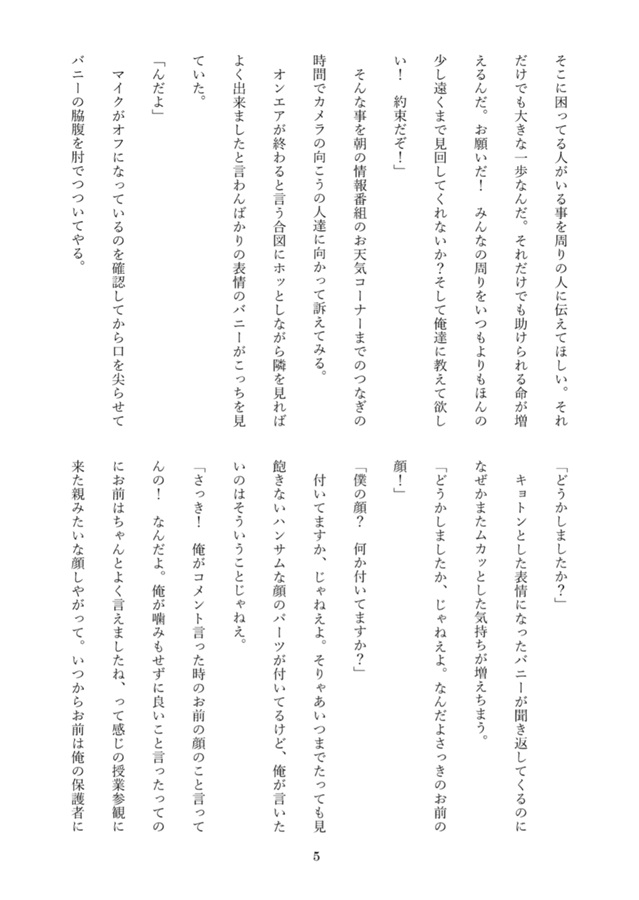 そこに困ってる人がいる事を周りの人に伝えてほしい。それ
だけでも大きな一歩なんだ。それだけでも助けられる命が増
えるんだ。お願いだ！　みんなの周りをいつもよりもほんの
少し遠くまで見回してくれないか？そして俺達に教えて欲し
い！　約束だぞ！」
　そんな事を朝の情報番組のお天気コーナーまでのつなぎの
時間でカメラの向こうの人達に向かって訴えてみる。
　オンエアが終わると言う合図にホッとしながら隣を見れば
よく出来ましたと言わんばかりの表情のバニーがこっちを見
ていた。
「んだよ」
　マイクがオフになっているのを確認してから口を尖らせて
バニーの脇腹を肘でつついてやる。
「どうかしましたか？」
　キョトンとした表情になったバニーが聞き返してくるのに
なぜかまたムカッとした気持ちが増えちまう。
「どうかしましたか、じゃねえよ。なんだよさっきのお前の
顔！」
「僕の顔？　何か付いてますか？」
　付いてますか、じゃねえよ。そりゃあいつまでたっても見
飽きないハンサムな顔のパーツが付いてるけど、俺が言いた
いのはそういうことじゃねえ。
「さっき！　俺がコメント言った時のお前の顔のこと言って
んの！　なんだよ。俺が噛みもせずに良いこと言ったっての
にお前はちゃんとよく言えましたね、って感じの授業参観に
来た親みたいな顔しやがって。いつからお前は俺の保護者に
5